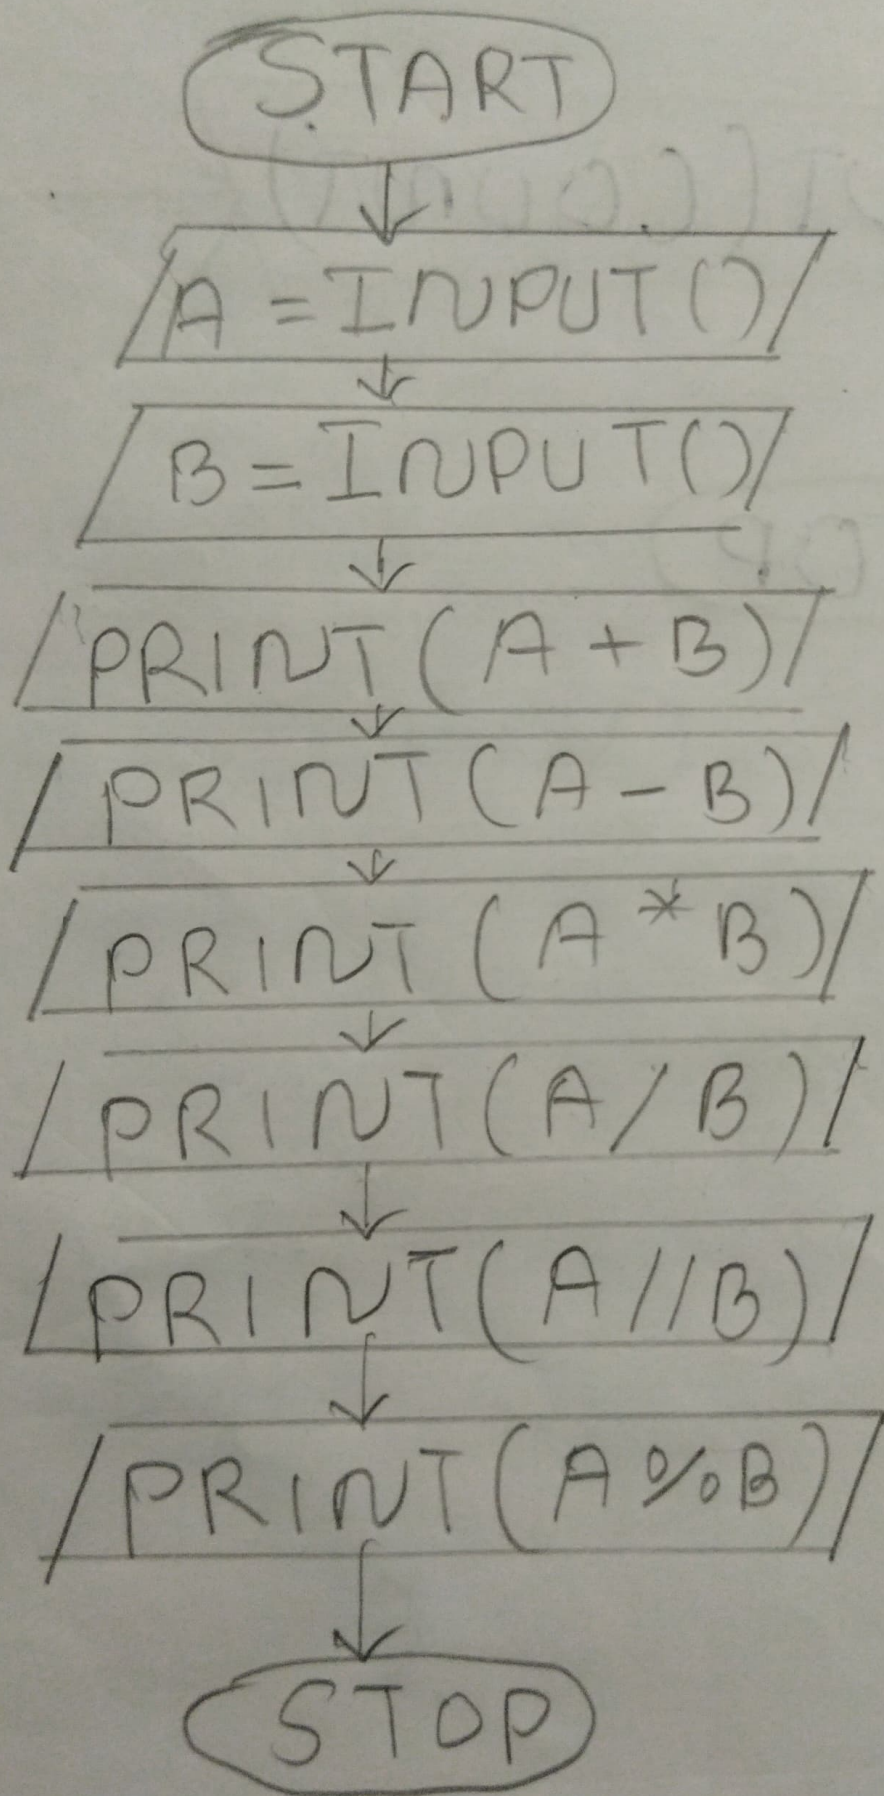 START
A = INPUT()
B = INPUT()
PRINT(A + B)
PRINT(A - B)
PRINT(A * B)
PRINT(A / B)
PRINT(A // B)
PRINT(A % B)
STOP